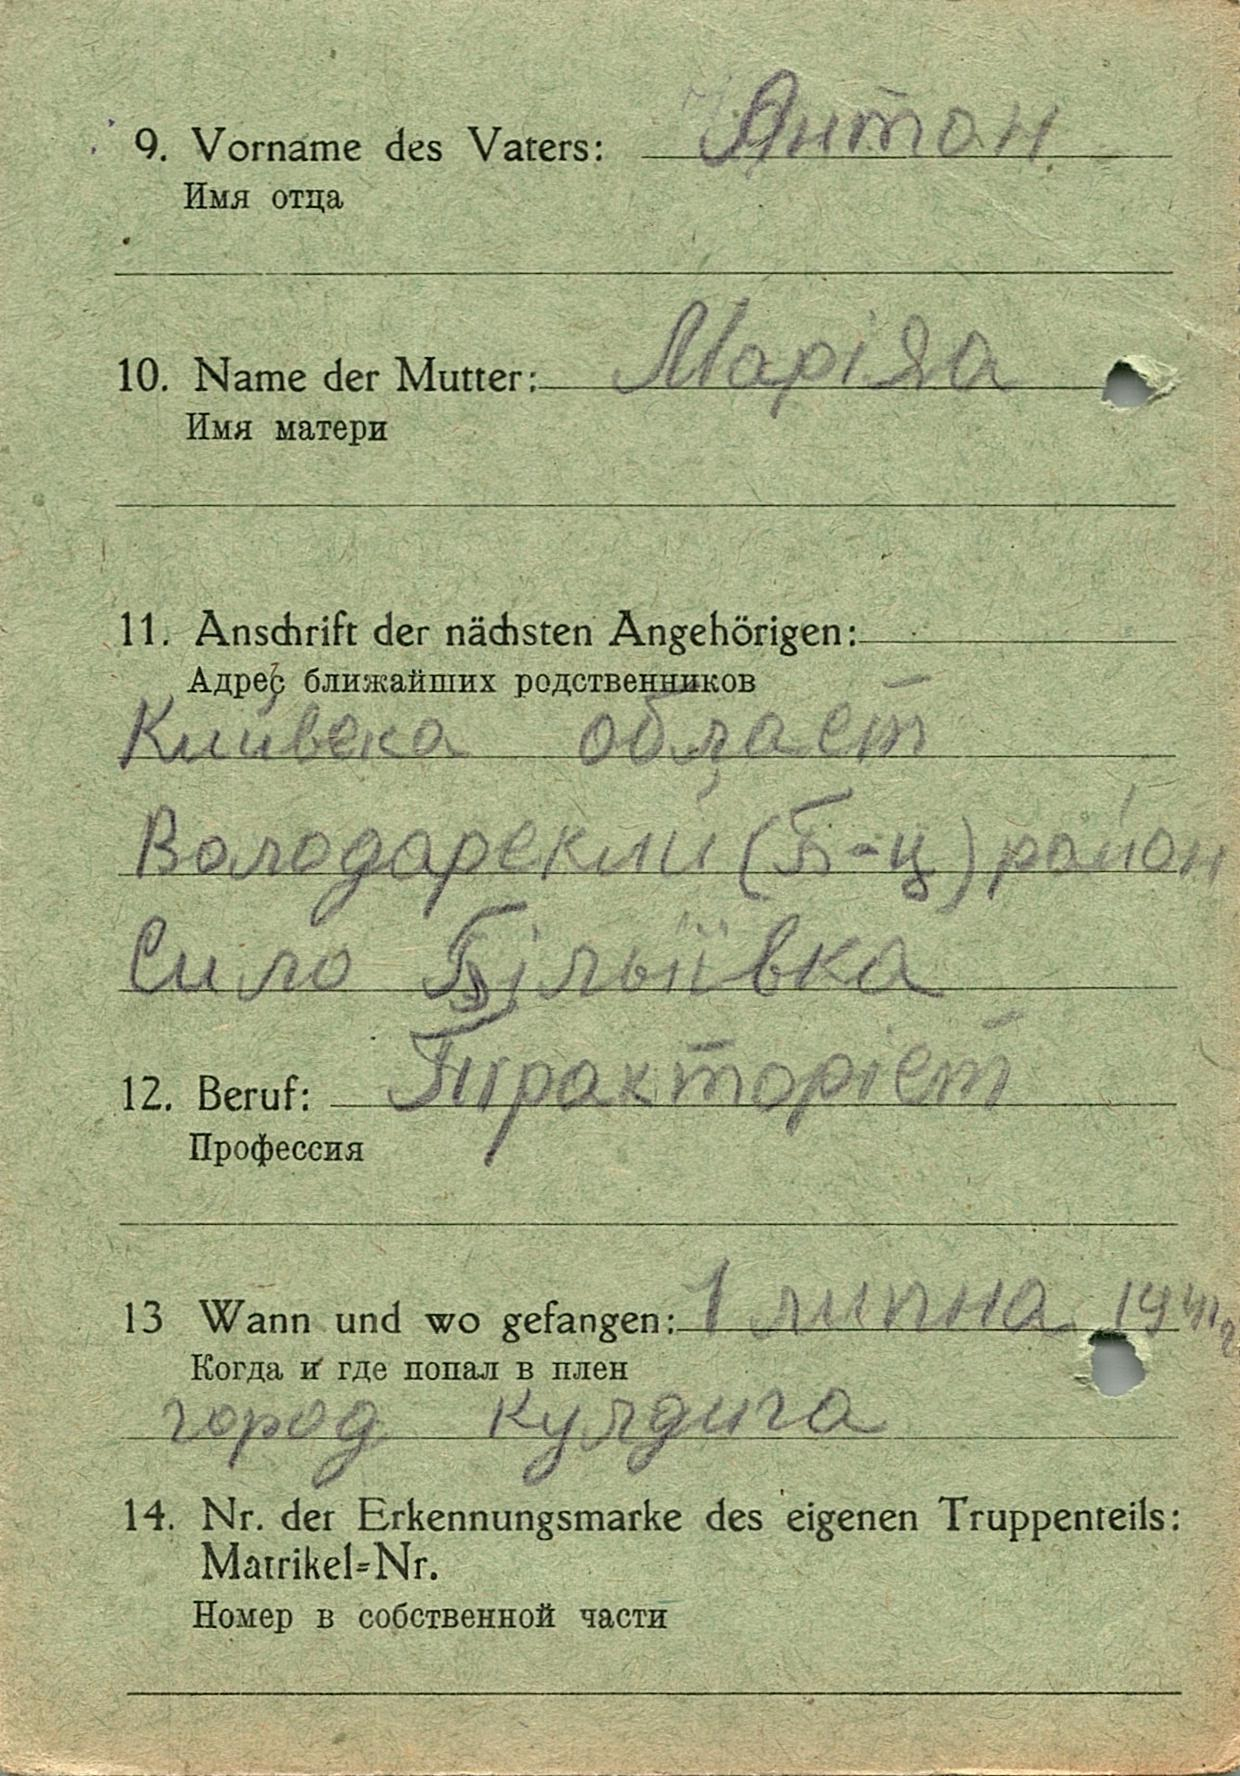 9. Vorname des Vaters: Антон
Имя отца
10. Name der Mutter: Маріяа
Имя матери
11. Anschrift der nächsten Angehörigen:
Адрес ближайших родственников
Киівска област
Володарский (Б-ц) район
Сило Більіївка
12. Beruf: Тракторіст
Профессия
13 Wann und wo gefangen: 1 липна 1941 г
Когда и где попал в плен
город кулдига
14. Nr. der Erkennungsmarke des eigenen Truppenteils:
Matrikel-Nr.
Номер в собственной части